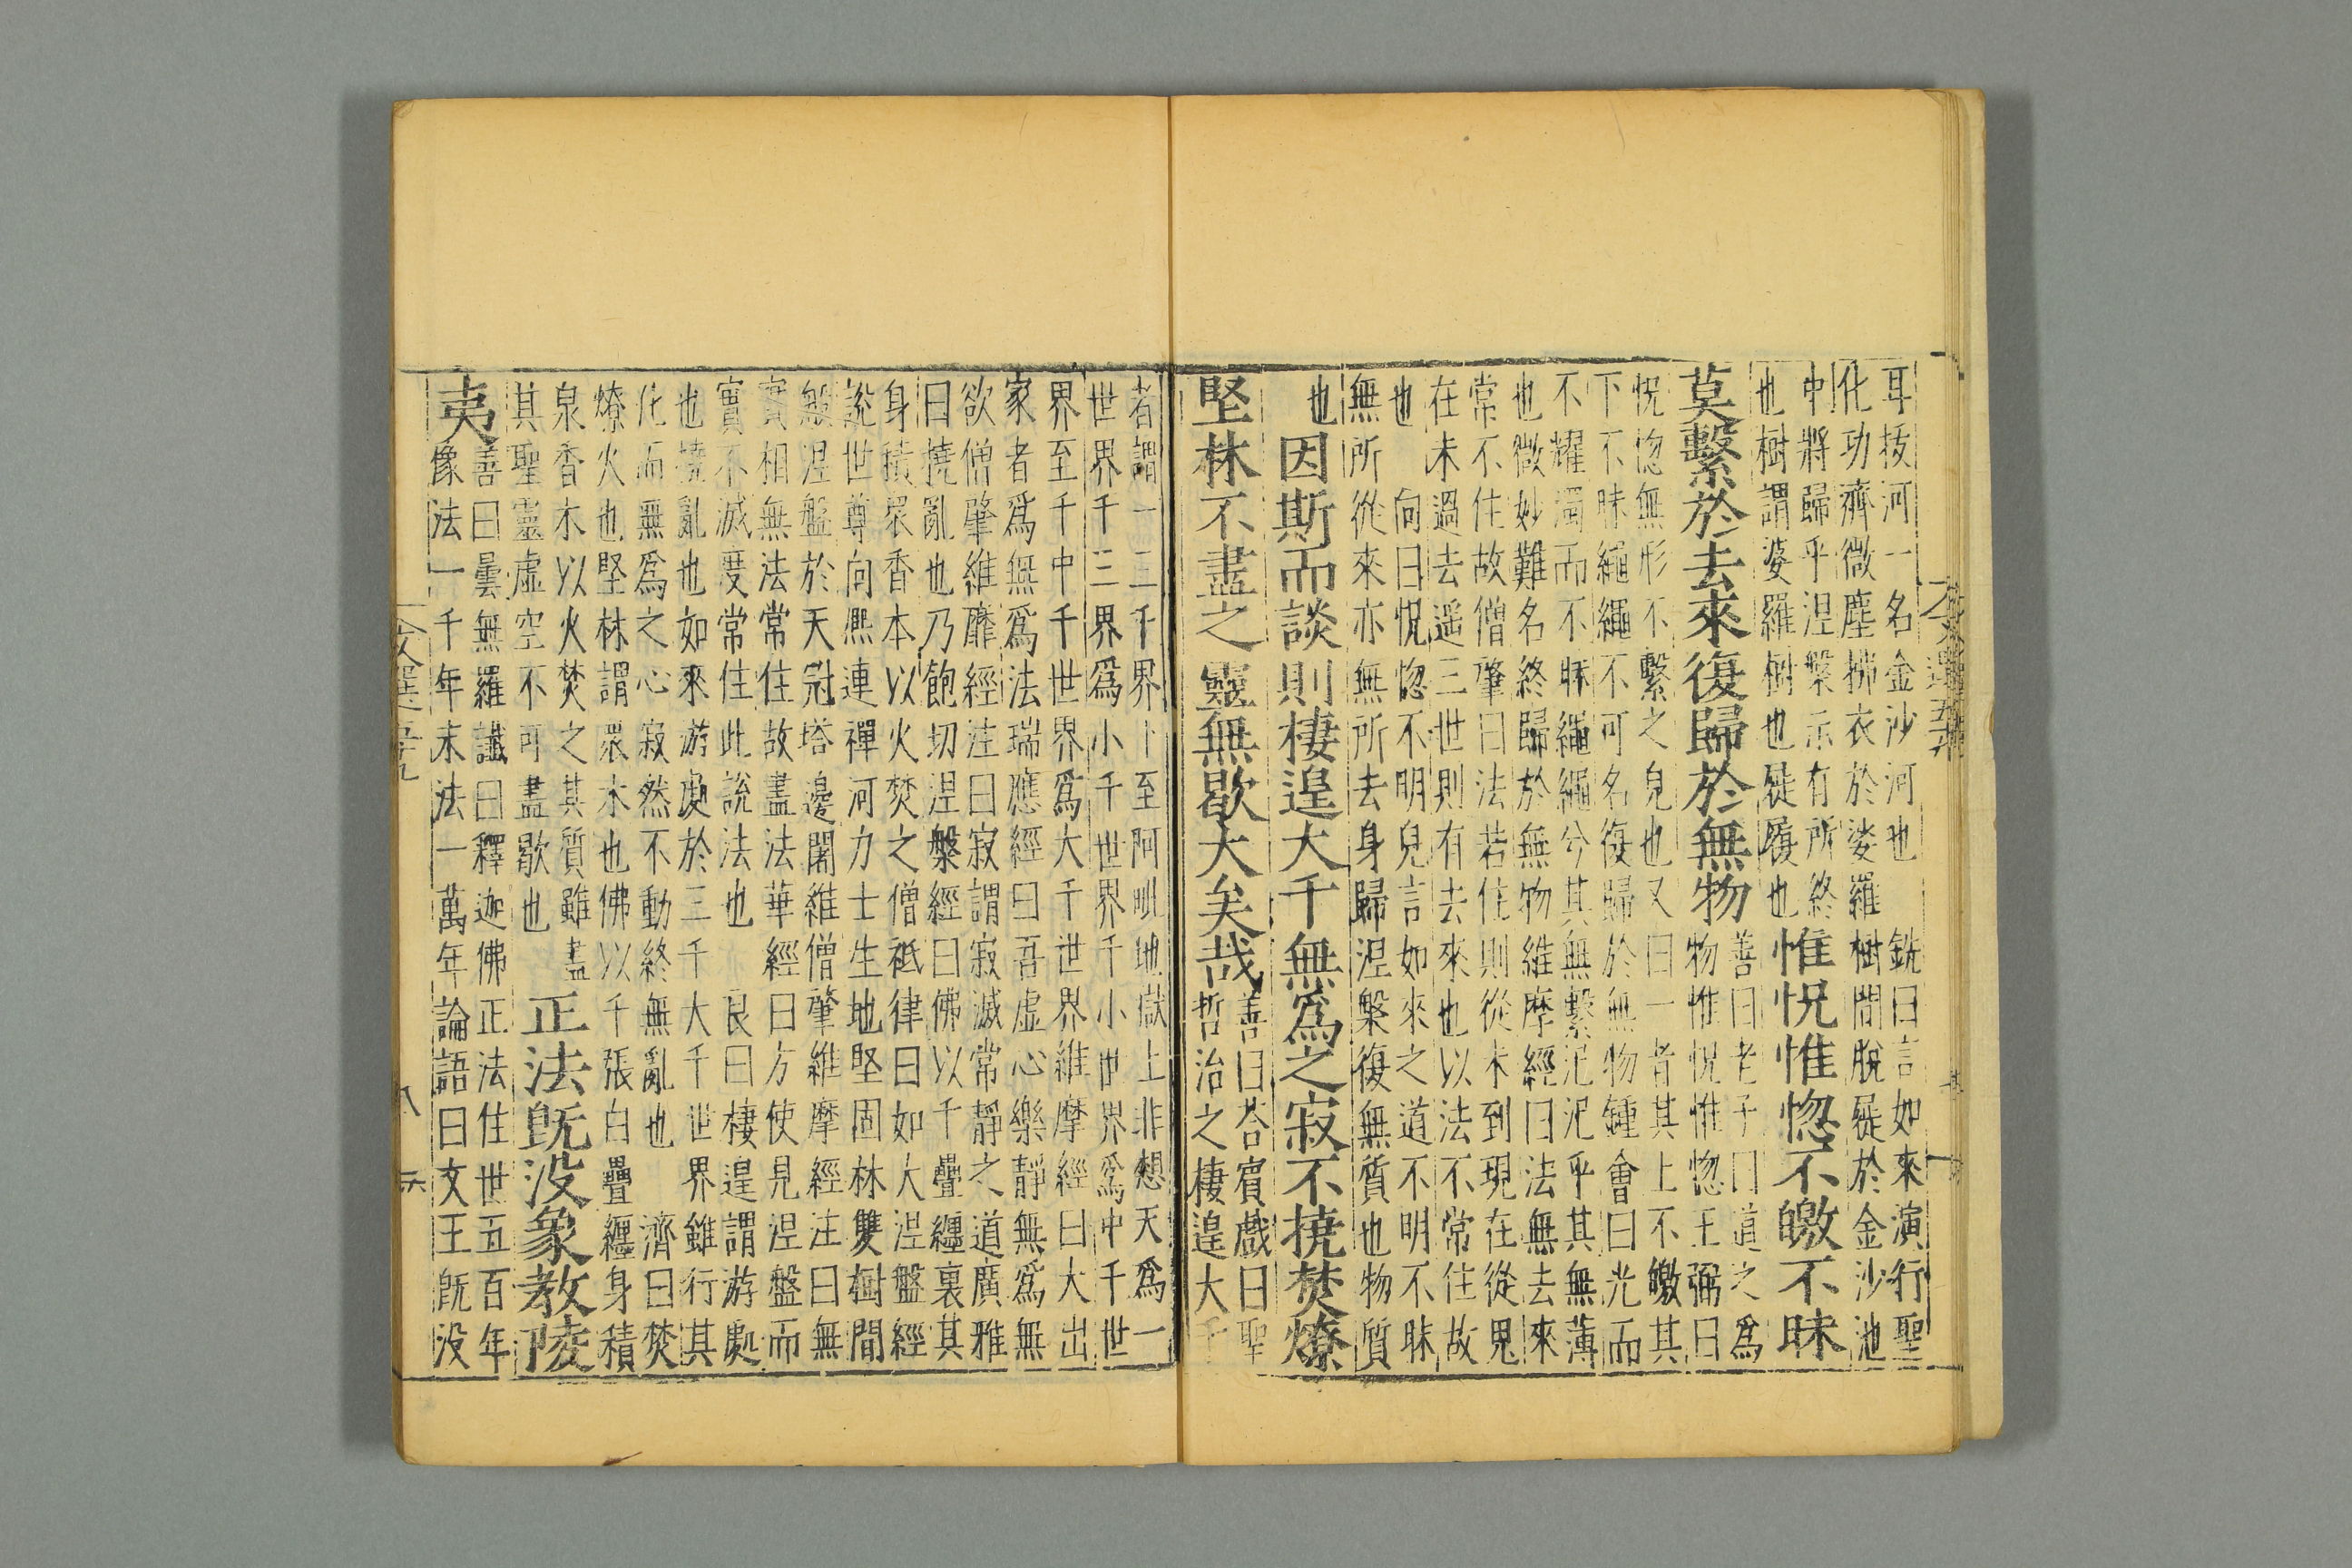 耳㧞河一名金沙河也　銑曰言如來演行聖
化功濟微塵拂衣於娑羅樹間脫屣於金沙池
中將歸乎涅槃示有所終
也樹謂婆羅樹也屣履也
惟怳惟惚不皦不昧
莫繫於去來復歸於無物
善曰老子曰道之爲
物惟怳惟惚王弼曰
怳惚無形不繫之皃也又曰一者其上不皦其
下不昧繩繩不可名復歸於無物鍾會曰光而
不耀濁而不昧繩繩兮其無繫汜汜乎其無薄
也微妙難名終歸於無物維摩經曰法無去來
常不住故僧肇曰法若住則從未到現在從現
在未過去遥三世則有去來也以法不常住故
也　向曰怳惚不明皃言如來之道不明不昧
無所從來亦無所去身歸涅槃復無質也物質
也
因斯而談則棲遑大千無爲之寂不撓焚燎
堅林不盡之靈無歇大矣哉
善曰荅賓戲曰聖
哲治之棲遑大千
者謂一三千界下至阿毗地獄上非想天爲一
世界千三界爲小千世界千小世界爲中千世
界至千中千世界爲大千世界維摩經曰大出
家者爲無爲法瑞應經曰吾虛心樂靜無爲無
欲僧肇維靡經注曰寂謂寂滅常靜之道廣雅
曰撓亂也乃飽切涅槃經曰佛以千疊纏裹其
身積衆香本以火焚之僧祇律曰如大涅盤經
說世尊向熈連禪河力士生地堅固林雙樹間
般涅盤於天冠塔邊闍維僧肇維摩經注曰無
實相無法常住故盡法華經曰方使見涅盤而
實不滅度常住此說法也　良曰棲遑謂游處
也撓亂也如來游處於三千大千世界雖行其
化而無爲之心寂然不動終無亂也　濟曰焚
燎火也堅林謂衆木也佛以千張白疊纏身積
泉香木以火焚之其質雖盡
其聖靈虛空不可盡歇也
正法旣没象教陵
夷
善曰曇無羅讖曰釋迦佛正法住世五百年
像法一千年末法一萬年論語曰文王旣没
文選五十九
八